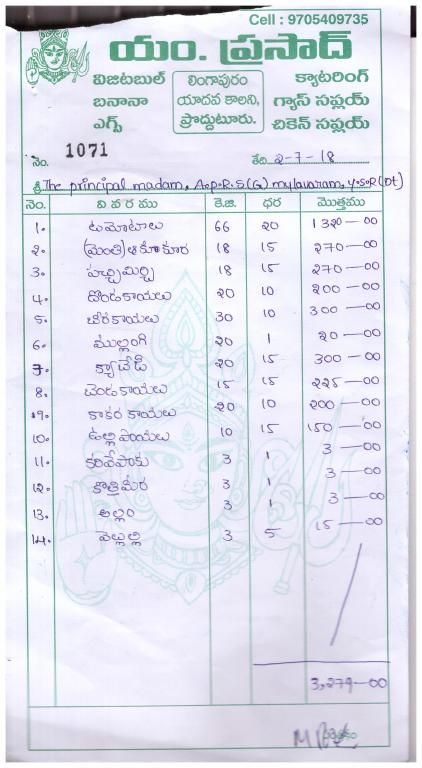 Cell : 9705409735
యం. ప్రసాద్
విజిటబుల్
బనానా
ఎగ్స్
లింగాపురం
యాదవ కాలని,
ప్రొద్దుటూరు.
క్యాటరింగ్
గ్యాస్ సప్లయ్
చికెన్ సప్లయ్
నెం. 1071 తేది 2-7-18
శ్రీ The principal madam, A.P.R.S(G) mylavaram, Y.S.R(Dt)
నెం. వివరము కె.జి. ధర మొత్తము
1. టమోటాలు 66 20 1320-00
2. (మెంతి) ఆకుకూర 18 15 270-00
3. పచ్చిమిర్చి 18 15 270-00
4. దొండకాయలు 20 10 200-00
5. బీరకాయలు 30 10 300-00
6. ముల్లంగి 20 1 20-00
7. క్యారేట్ 20 15 300-00
8. బెండకాయలు 15 15 225-00
9. కాకర కాయలు 20 10 200-00
10. ఉల్లిపాయలు 10 15 150-00
11. కరివేపాకు 3 1 3-00
12. కొత్తిమీర 3 1 3-00
13. అల్లం 3 1 3-00
14. వెల్లుల్లి 3 5 15-00
3,279-00